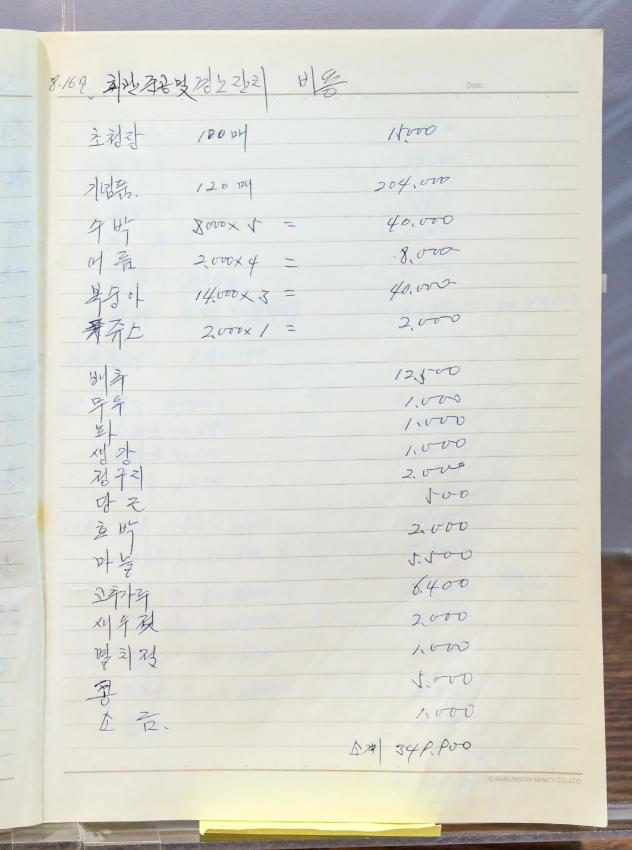 8.16일 회관 주공 및 경노잔치 비용
Date
초청장 100매 15,000
기념품. 120매 204,000
수박 8000 x 5 = 40,000
어름 2,000 x 4 = 8,000
복숭아 14,000 x 3 = 40,000
쥬스 2,000 x 1 = 2,000
배추 12,500
무우 1,000
파 1,000
생강 1,000
정구지 2,000
당근 500
호박 2,000
마늘 5,500
고추가루 6,400
새우젓 2,000
멸치젓 1,000
콩 5,000
소금. 1,000
소계 349,900
©BARUNSON FANCY CO.,LTD.